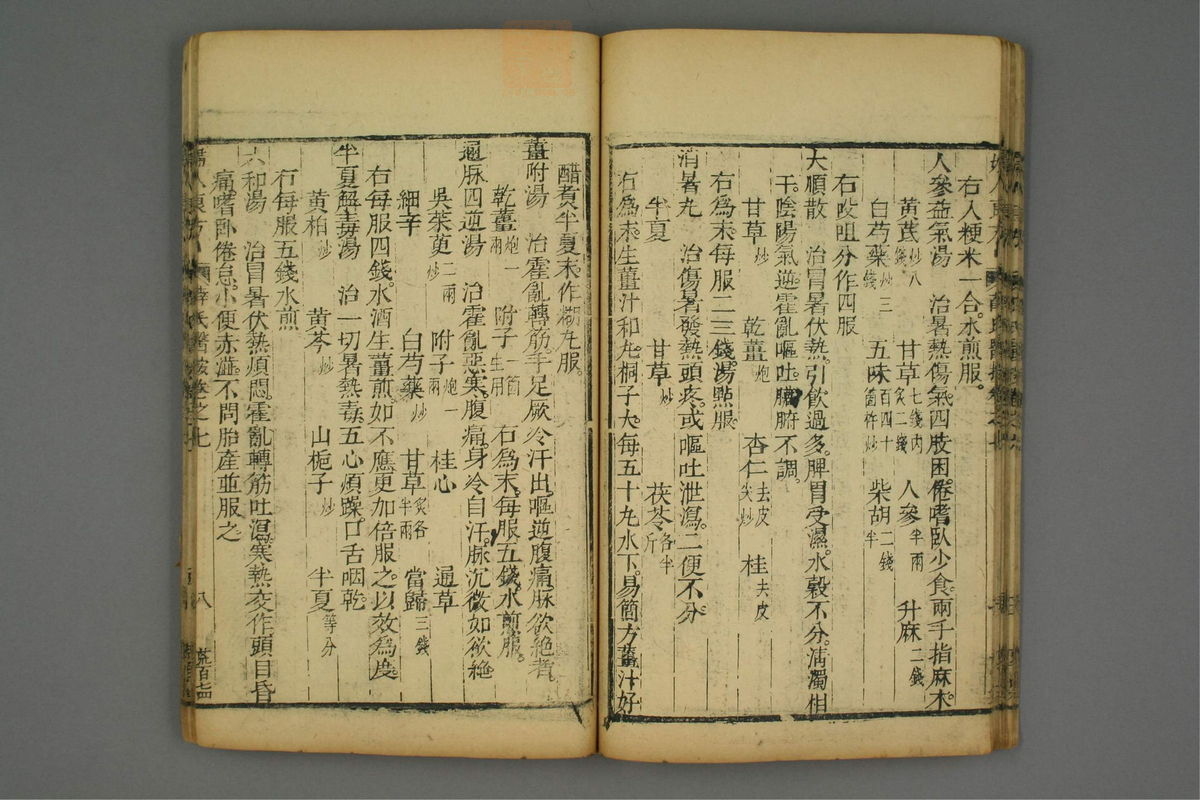 右入粳米一合水煎服。
人參益氣湯　治暑熱傷氣四肢困倦嗜臥少食兩手指麻木
黃芪炒八錢　甘草七錢內炙二錢　人參半兩　升麻二錢
白芍藥炒三錢　五味百四十箇杵炒　柴胡二錢半
右㕮咀分作四服
大順散　治冒暑伏熱。引飲過多。脾胃受濕。水穀不分。淸濁相
干。陰陽氣逆。霍亂嘔吐。臟腑不調。
甘草炒　乾薑炮　杏仁去皮尖炒　桂去皮
右爲末每服二三錢。湯點服
消暑丸　治傷暑發熱頭疼。或嘔吐泄瀉。二便不分
半夏　甘草炒　茯苓各半斤
右爲末生薑汁和丸。桐子大。每五十丸水下。易簡方薑汁好
醋煮半夏末作糊丸服。
薑附湯　治霍亂轉筋。手足厥冷汗出。嘔逆腹痛。脉欲絶者
乾薑炮一兩　附子一箇生用　右爲末。每服五錢。水煎服。
通脉四逆湯　治霍亂惡寒。腹痛。身冷自汗。脉沉微如欲絶
吳茱萸炒二兩　附子炮一兩　桂心　通草
細辛　白芍藥炒　甘草炙各半兩　當歸三錢
右每服四錢。水酒生薑煎如不應更加倍服之。以效爲度
半夏解毒湯　治一切暑熱毒五心煩躁口舌咽乾
黃柏炒　黃芩炒　山梔子炒　半夏等分
右每服五錢水煎
六和湯　治冒暑伏熱煩悶。霍亂轉筋吐瀉寒熱交作頭目昏
痛。嗜卧倦怠。小便赤澁。不問胎產並服之